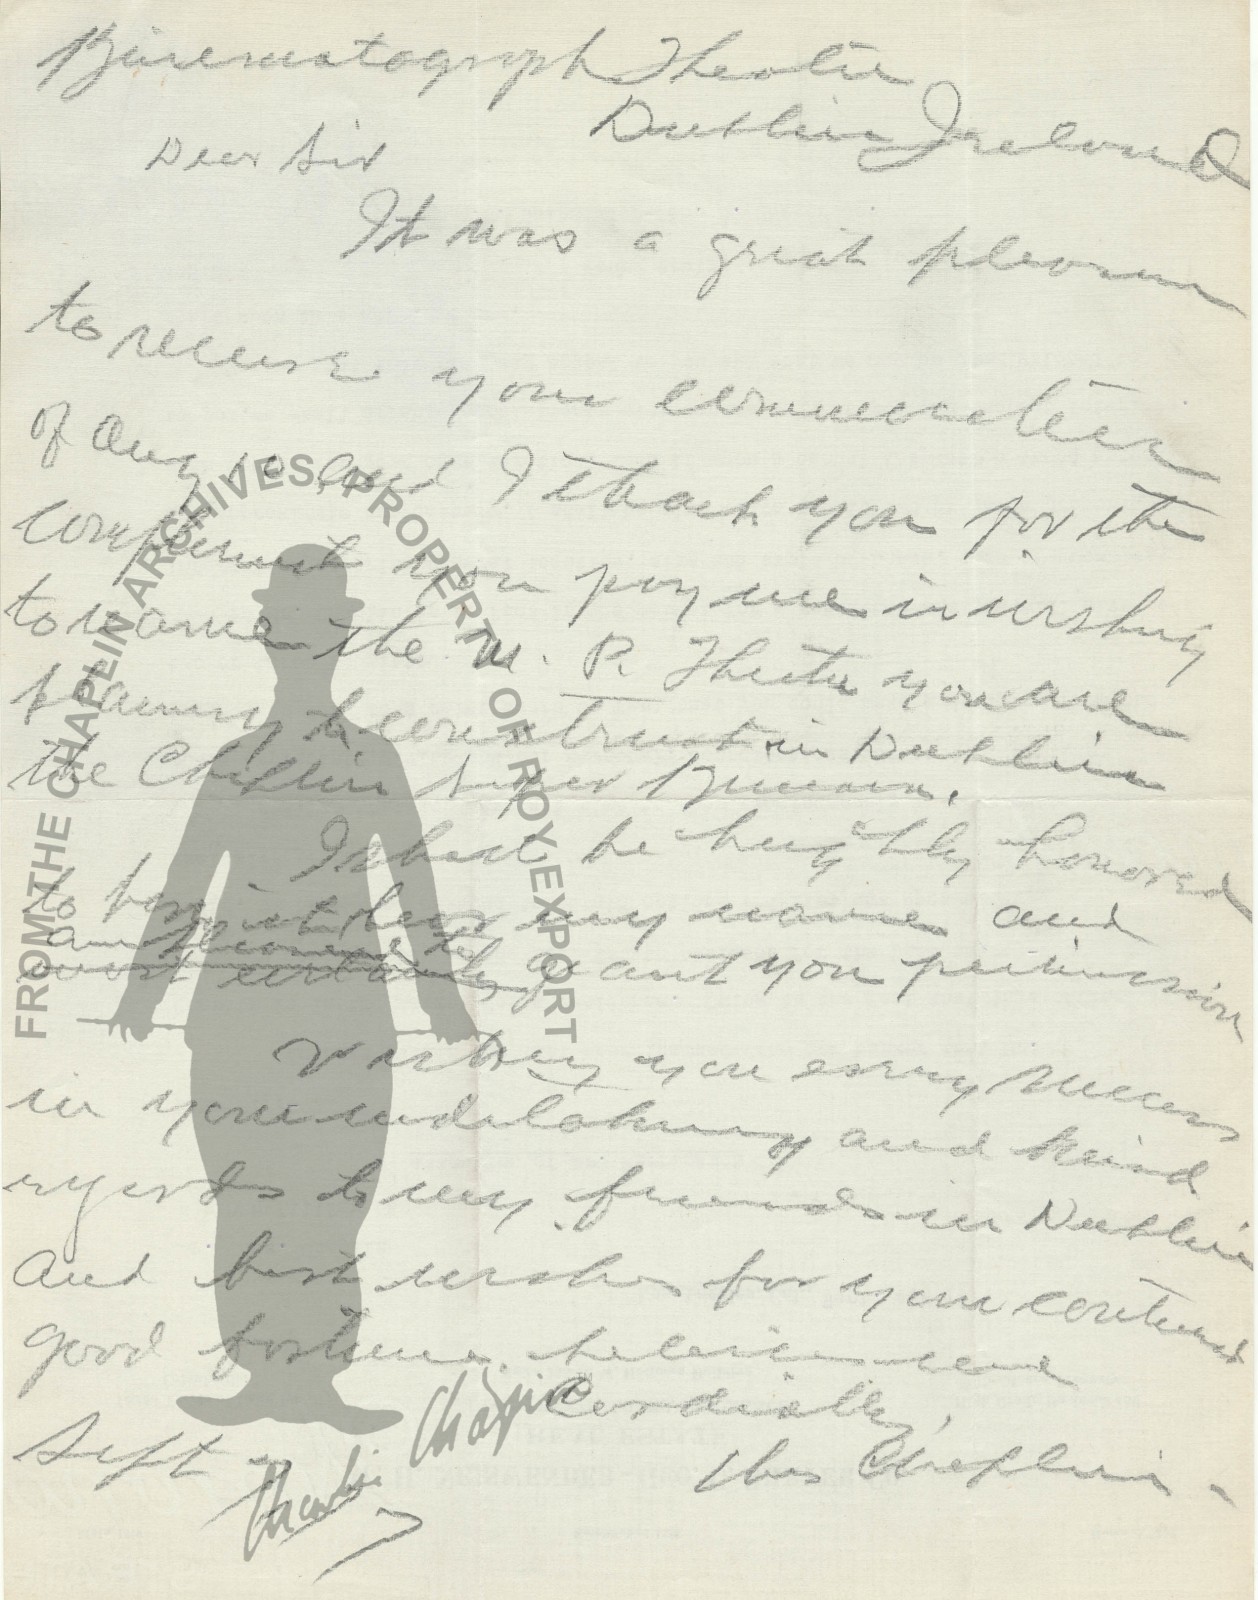 Kinematograph Theatre
Dublin Ireland
Dear Sir
It was a great pleasure
to receive your
of Aug and I thank you for the
compliment you pay me in wishing
to name the M. P. Theatre you are
planning to construct in Dublin
the Chaplin Super Kinema.
I shall be highly honored
to my name and
most certainly grant you permission
Wishing you every success
in your undertaking and kind
regards to my friends in Dublin
and best wishes for your continued
good fortune, believe me
Cordially,
Sept
Chas Chaplin -
Charlie Chaplin
FROM THE CHAPLIN ARCHIVES, PROPERTY OF ROY EXPORT